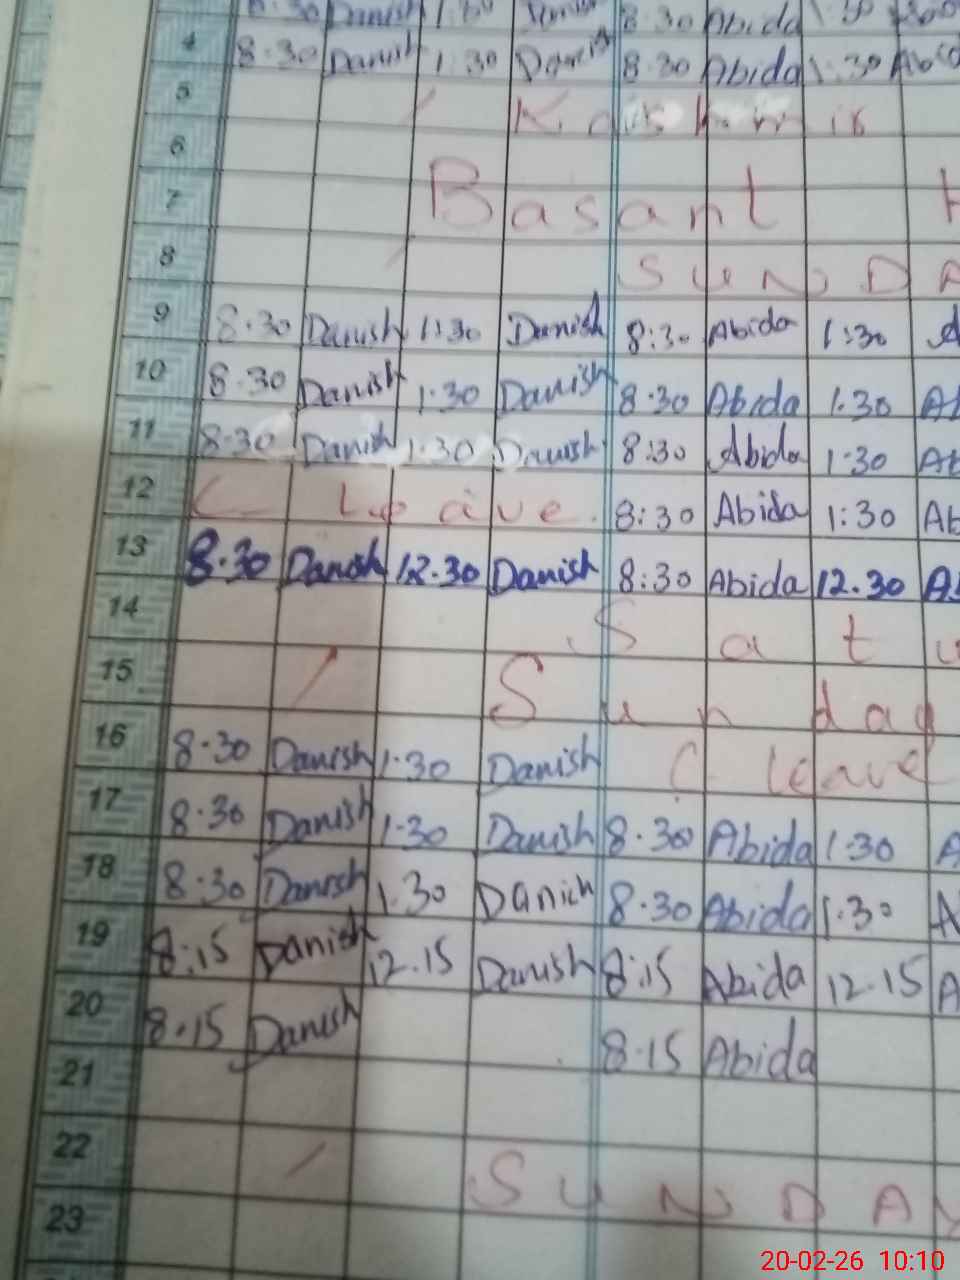 8:30 Danish 1:30 8:30 Abida 1:30
4 8:30 Danish 1:30 Danish 8:30 Abida 1:30 Abid
5 Kashmir
6
7 Basant
8 SUNDA
9 8:30 Danish 1:30 Danish 8:30 Abida 1:30 A
10 8:30 Danish 1:30 Danish 8:30 Abida 1:30 Ab
11 8:30 Danish 1:30 Danish 8:30 Abida 1:30 Ab
12 C Leave 8:30 Abida 1:30 Ab
13 8:30 Danish 12.30 Danish 8:30 Abida 12.30 Ab
14 Satu
15 Sunday
16 8:30 Danish 1:30 Danish C leave
17 8:30 Danish 1:30 Danish 8:30 Abida 1:30 A
18 8:30 Danish 1:30 Danish 8:30 Abida 1:30 A
19 8:15 Danish 12.15 Danish 8:15 Abida 12.15 A
20 8.15 Danish 8.15 Abida
21
22 SUNDAY
23
20-02-26 10:10